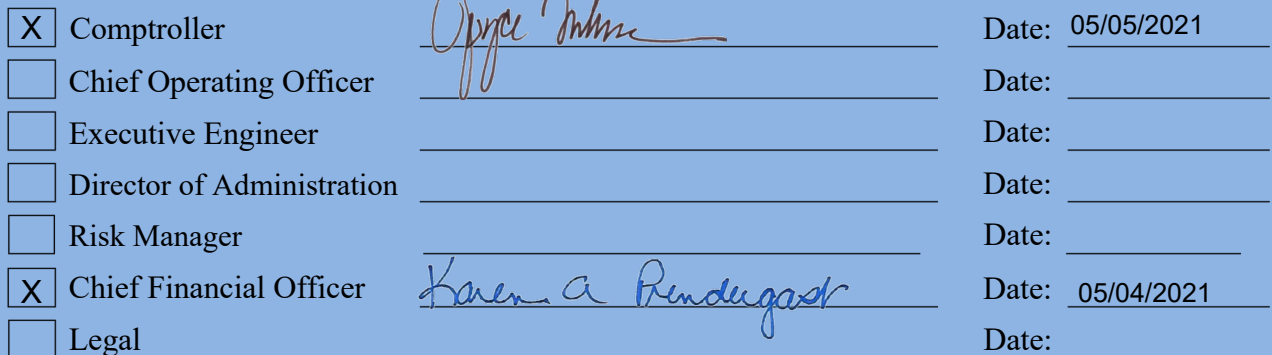 X Comptroller Date: 05/05/2021
Chief Operating Officer Date:
Executive Engineer Date:
Director of Administration Date:
Risk Manager Date:
X Chief Financial Officer Karen A Prendergast Date: 05/04/2021
Legal Date: